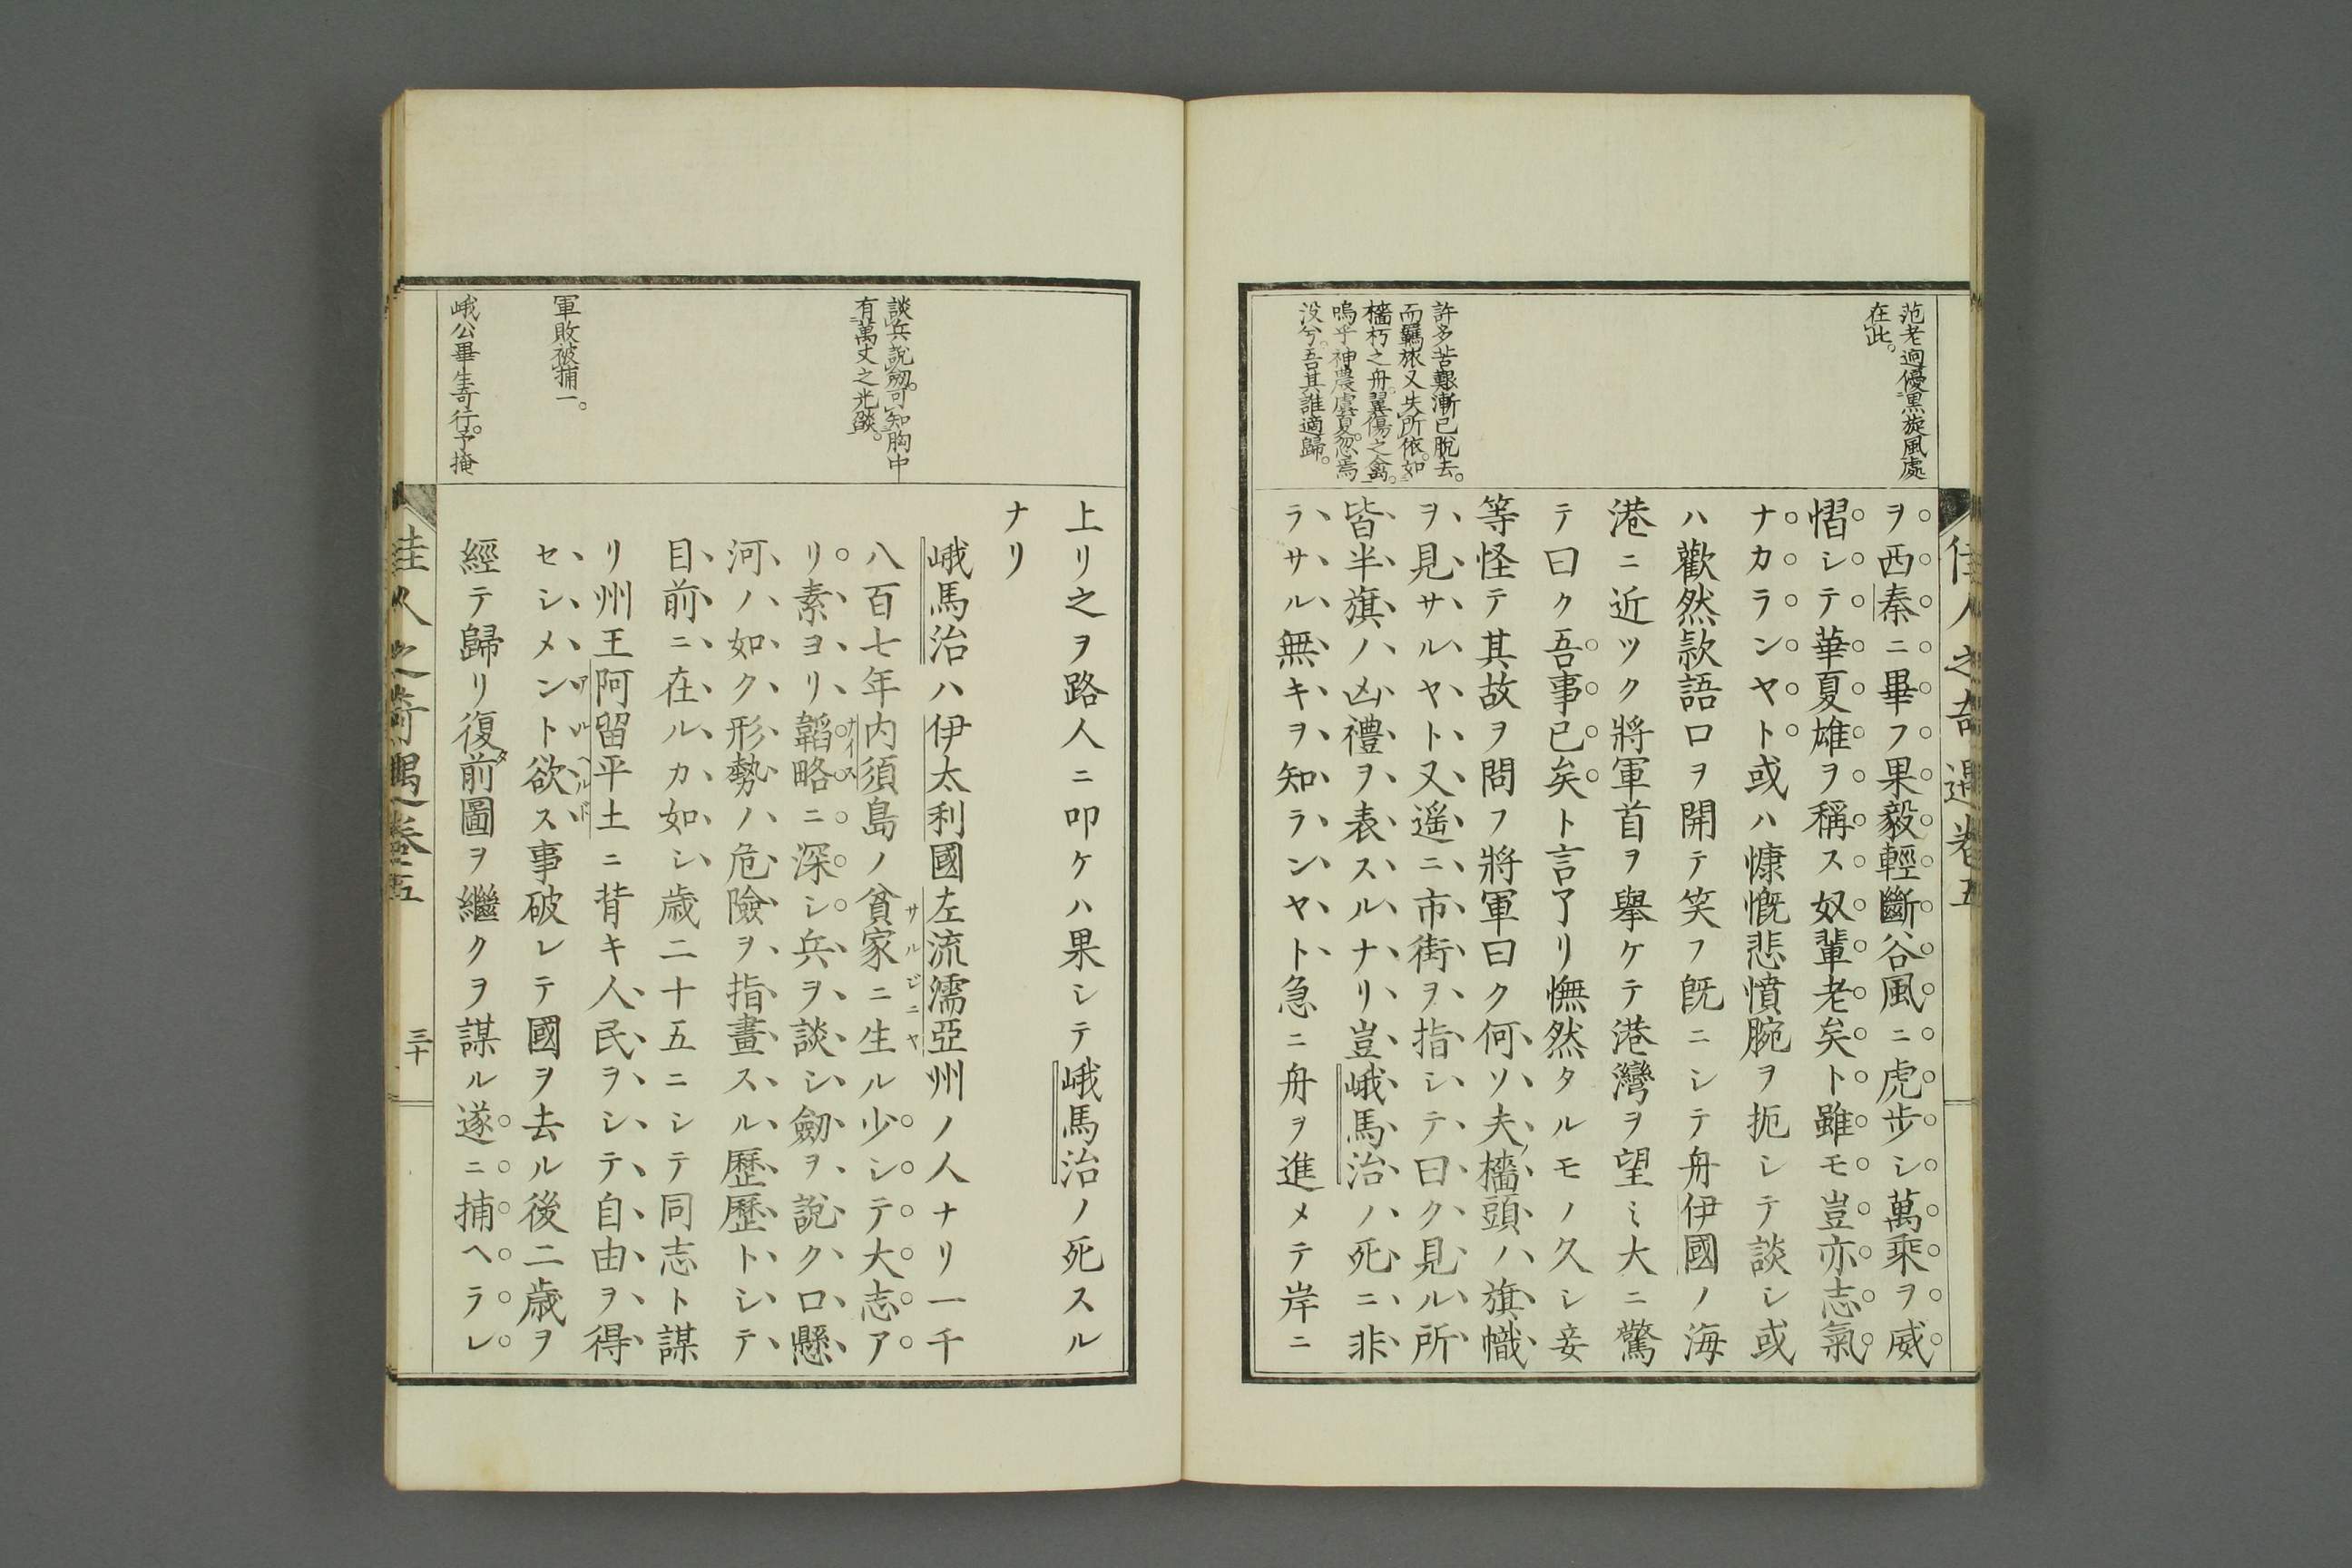 佳人之奇遇卷五
范老迥優黒旋風處
在此。
ヲ西秦ニ畢フ果毅輕斷谷風ニ虎歩シ萬乘ヲ威
慴シテ華夏雄ヲ稱ス奴輩老矣ト雖モ豈亦志氣
ナカランヤト或ハ慷慨悲憤腕ヲ扼シテ談シ或
ハ歡然款語口ヲ開テ笑フ既ニシテ舟伊國ノ海
港ニ近ツク將軍首ヲ擧ケテ港灣ヲ望ミ大ニ驚
テ曰ク吾事已矣ト言了リ憮然タルモノ久シ妾
許多苦艱漸已脱去。
而羈旅又失所依。如
檣朽之舟。翼傷之禽。
嗚乎神農虞夏忽焉
没兮。吾其誰適歸。
等怪テ其故ヲ問フ將軍曰ク何ソ夫ノ檣頭ノ旗幟
ヲ見サルヤト又遥ニ市街ヲ指シテ曰ク見ル所
皆半旗ノ凶禮ヲ表スルナリ豈峨馬治ノ死ニ非
ラサル無キヲ知ランヤト急ニ舟ヲ進メテ岸ニ
上リ之ヲ路人ニ叩ケハ果シテ峨馬治ノ死スル
ナリ
峨馬治ハ伊太利國左流濡亞州ノ人ナリ一千
サルジニヤ
談兵說劒。可知胸中
有萬丈之光燄。
八百七年内須島ノ貧家ニ生ル少シテ大志ア
ナイス
リ素ヨリ韜略ニ深シ兵ヲ談シ劒ヲ說ク口懸
河ノ如ク形勢ノ危險ヲ指畫スル歷歷トシテ
目前ニ在ルカ如シ歳二十五ニシテ同志ト謀
リ州王阿留平土ニ背キ人民ヲシテ自由ヲ得
アルヘルド
軍敗被捕一。
セシメント欲ス事破レテ國ヲ去ル後二歳ヲ
峨公畢生奇行。予掩
經テ歸リ復タ前圖ヲ繼クヲ謀ル遂ニ捕ヘラレ
佳人之奇遇卷五
三十